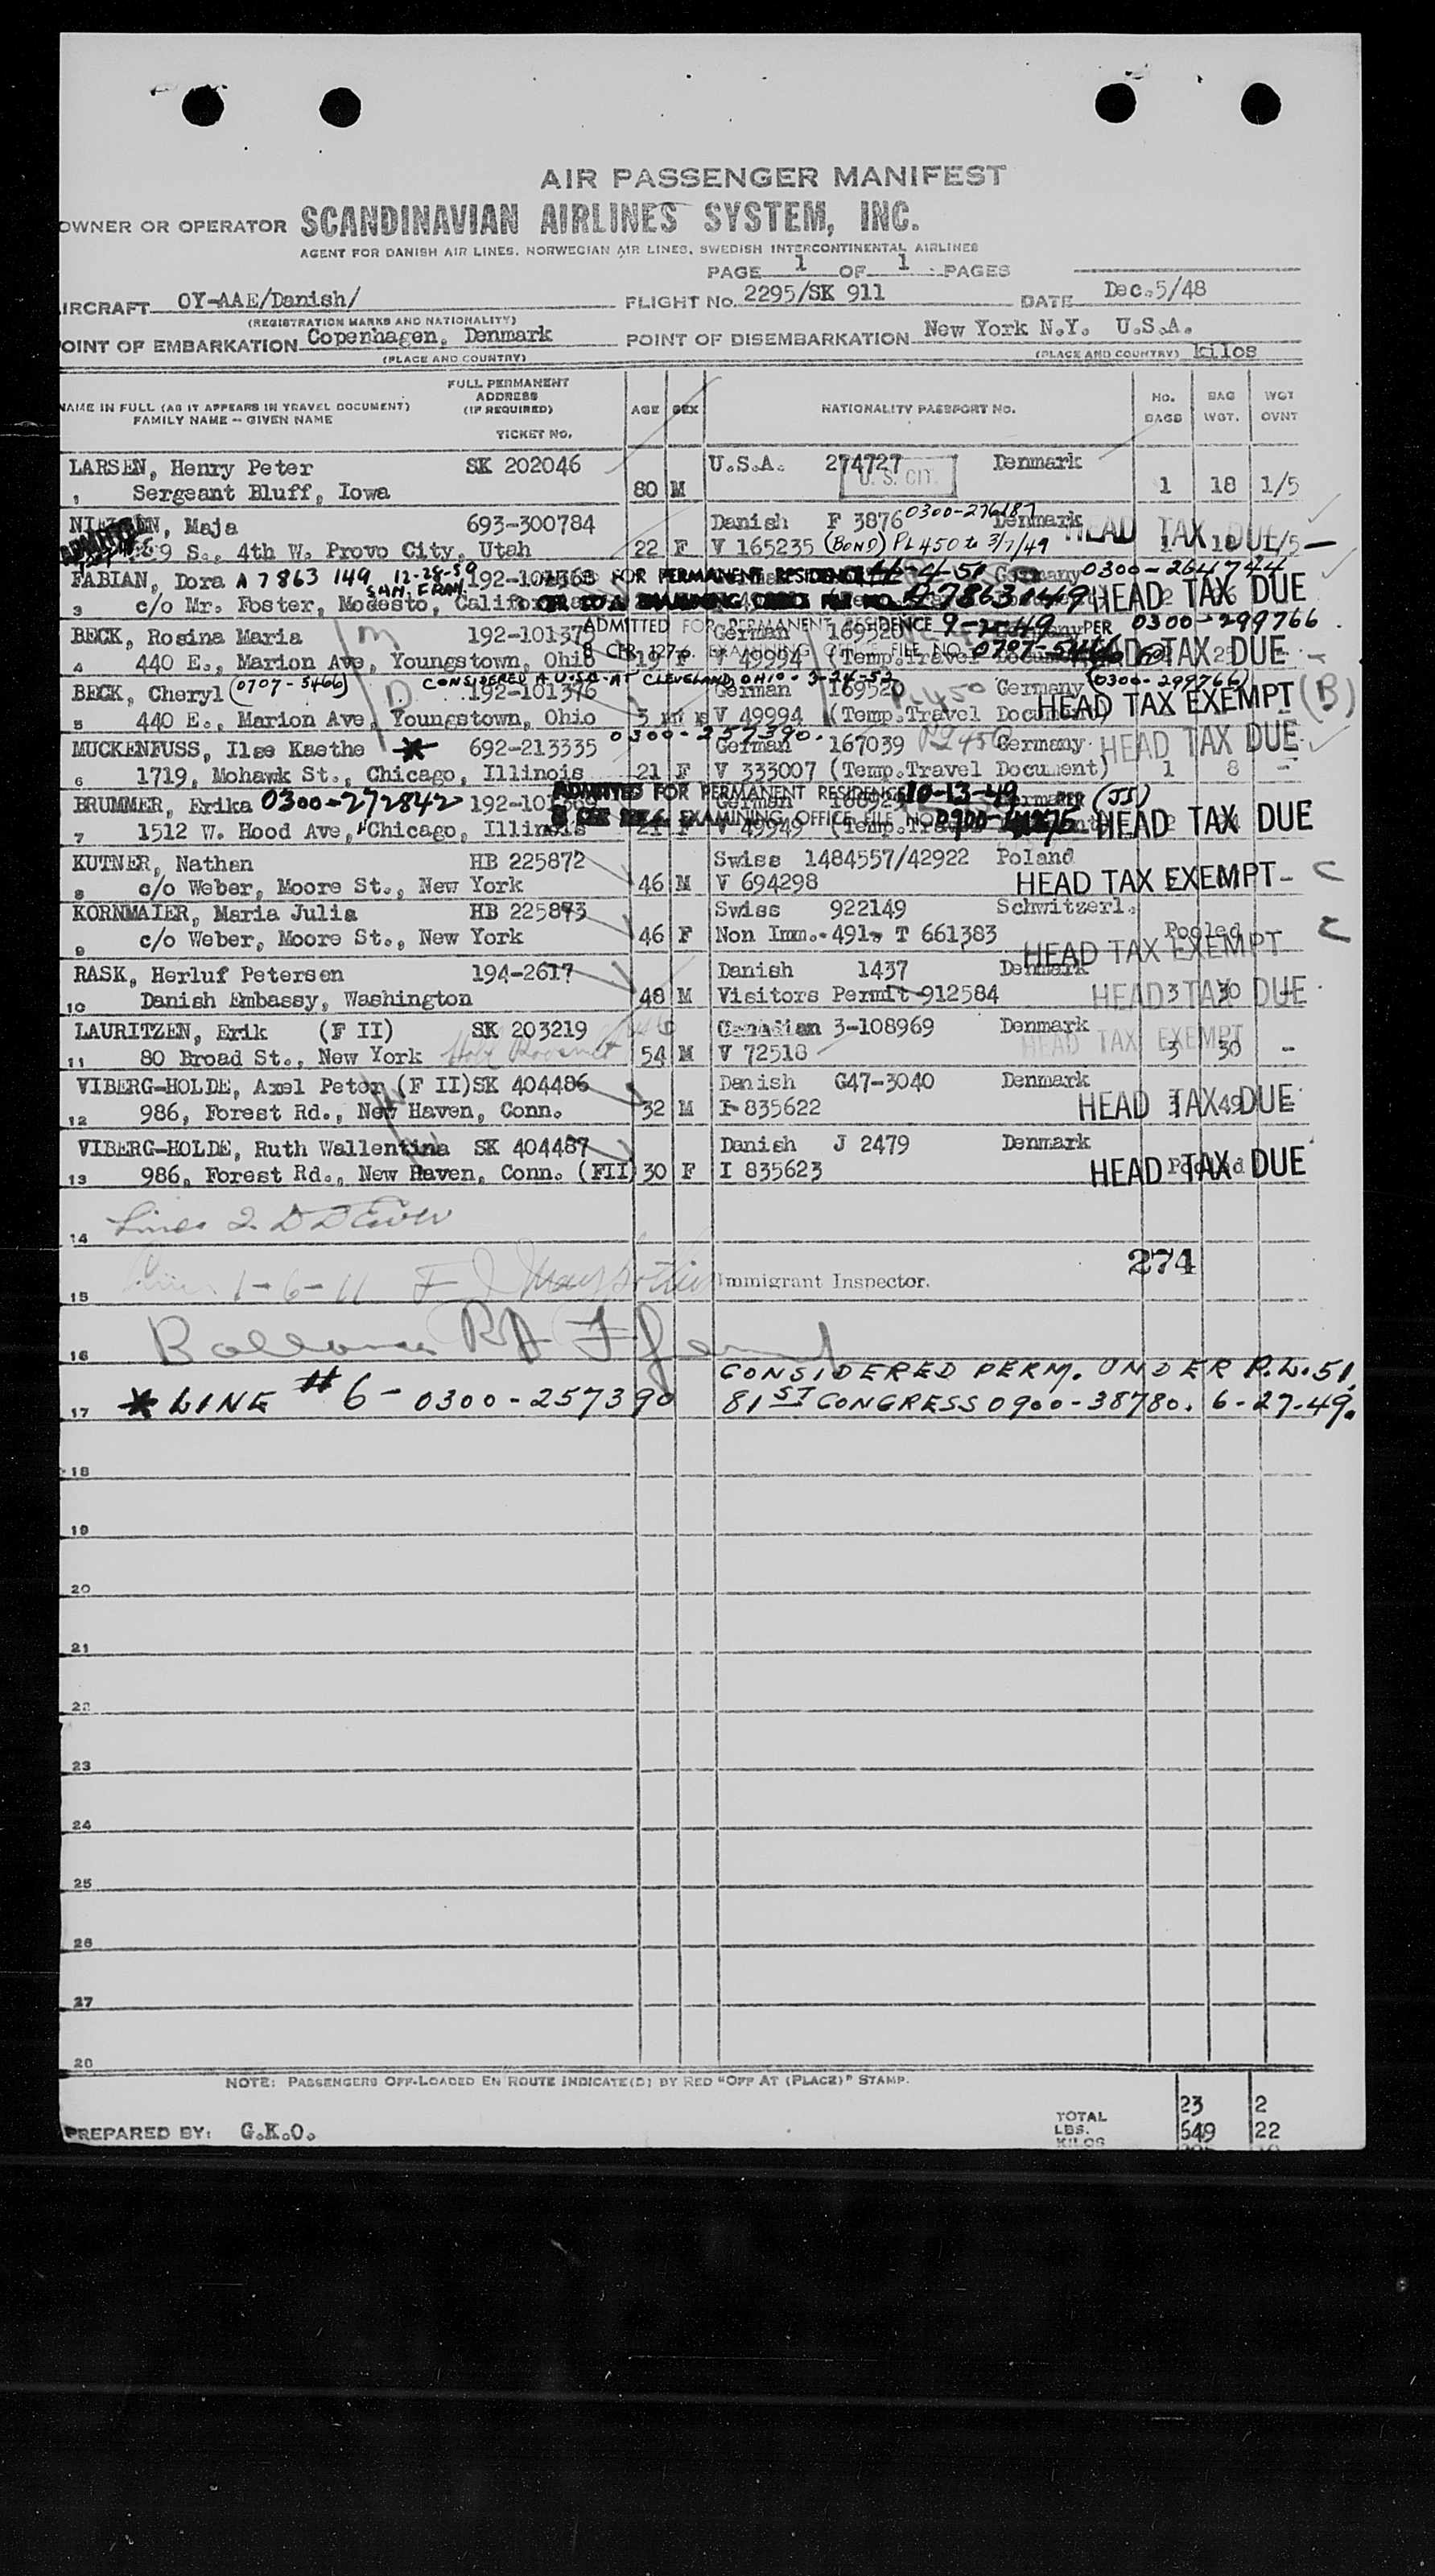 AIR PASSENGER MANIFEST
OWNER OR OPERATOR SCANDINAVIAN AIRLINES SYSTEM, INC.
AGENT FOR DANISH AIR LINES, NORWEGIAN AIR LINES, SWEDISH INTERCONTINENTAL AIRLINES
PAGE 1 OF 1 PAGES
IRCRAFT OY-AAE/Danish/ FLIGHT No. 2295/SK 911 DATE Dec.5/48
(REGISTRATION MARKS AND NATIONALITY)
OINT OF EMBARKATION Copenhagen, Denmark POINT OF DISEMBARKATION New York N.Y. U.S.A.
(PLACE AND COUNTRY) (PLACE AND COUNTRY) kilos
NAME IN FULL (AS IT APPEARS IN TRAVEL DOCUMENT) FAMILY NAME -- GIVEN NAME FULL PERMANENT ADDRESS (IF REQUIRED) TICKET NO. AGE SEX NATIONALITY PASSPORT NO. NO. BAGS BAG WGT. WGT OVNT
LARSEN, Henry Peter SK 202046 U.S.A. 274727 Denmark
U.S. CIT.
, Sergeant Bluff, Iowa 80 M 1 18 1/5
0300-276187
Maja 693-300784 Danish F 3876 Denmark HEAD TAX DUE
9 S., 4th W. Provo City, Utah 22 F V 165235 (BOND) PL 450 to 3/7/49
FABIAN, Dora A 7863 149 12-28-59 SAN. FRAN. 192-101368 FOR PERMANENT RESIDENCE Germany 0300-264744
3 c/o Mr. Foster, Modesto, A7863149 HEAD TAX DUE
ADMITTED FOR PERMANENT RESIDENCE 9-2-49 PER 0300-299766
BECK, Rosina Maria 192-101375 German 169520
4 440 E., Marion Ave, Youngstown, Ohio 19 F V 49994 (Temp.Travel 0707-5466 TAX DUE
BECK, Cheryl (0707-5466) CONSIDERED A U.S.C. AT CLEVELAND, OHIO. 3-24-52 192-101376 German 169520 PL 450 Germany (0300-299766)
5 440 E., Marion Ave, Youngstown, Ohio V 49994 (Temp.Travel Document) HEAD TAX EXEMPT (B)
0300-257390.
MUCKENFUSS, Ilse Kaethe * 692-213335 German 167039 PL450 Germany HEAD TAX DUE
6 1719, Mohawk St., Chicago, Illinois 21 F V 333007 (Temp.Travel Document) 1 8 -
ADMITTED FOR PERMANENT RESIDENCE 10-13-49 PER (JJ)
BRUMMER, Erika 0300-272842
EXAMINING OFFICE FILE NO.
7 1512 W. Hood Ave, Chicago, Illinois 21 F V 49949 HEAD TAX DUE
KUTNER, Nathan HB 225872 Swiss 1484557/42922 Poland
8 c/o Weber, Moore St., New York 46 M V 694298 HEAD TAX EXEMPT C
KORNMAIER, Maria Julia HB 225873 Swiss 922149 Schwitzerl.
9 c/o Weber, Moore St., New York 46 F Non Imm. 491, T 661383 Pooled
HEAD TAX EXEMPT
RASK, Herluf Petersen 194-2617 Danish 1437 Denmark
10 Danish Embassy, Washington 48 M Visitors Permit 912584 HEAD TAX DUE 3 30
LAURITZEN, Erik (F II) SK 203219 Canadian 3-108969 Denmark
11 80 Broad St., New York 54 M V 72518 HEAD TAX EXEMPT 3 30 -
VIBERG-HOLDE, Axel Peter (F II) SK 404486 Danish G47-3040 Denmark
12 986, Forest Rd., New Haven, Conn. 32 M I-835622 HEAD TAX DUE 49
VIBERG-HOLDE, Ruth Wallentina SK 404487 Danish J 2479 Denmark
13 986, Forest Rd., New Haven, Conn. (FII) 30 F I 835623 HEAD TAX DUE Pooled
14 Lines 2
274
15 1-6-11 Immigrant Inspector.
16
CONSIDERED PERM. UNDER P.L. 51,
17 * LINE # 6 - 0300-257390 81ST CONGRESS 0900-38780. 6-27-49.
18
19
20
21
22
23
24
25
26
27
28
NOTE: PASSENGERS OFF-LOADED EN ROUTE INDICATE(D) BY RED "OFF AT (PLACE)" STAMP.
23 2
PREPARED BY: G.K.O. TOTAL LBS. KILOS 549 22